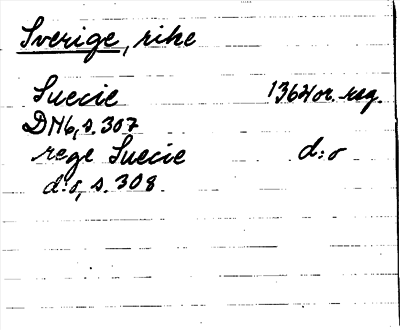 Sverige, rike
Suecie 1364 or. reg.
DN6, s. 307
rege Suecie d:o
d:o, s. 308.